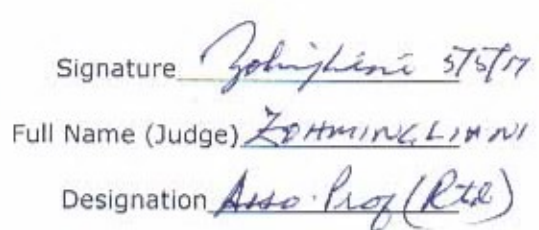 Signature Zohmingliani 5/5/17
Full Name (Judge) ZOHMINGLIANI
Designation Asso. Prof (Rtd)